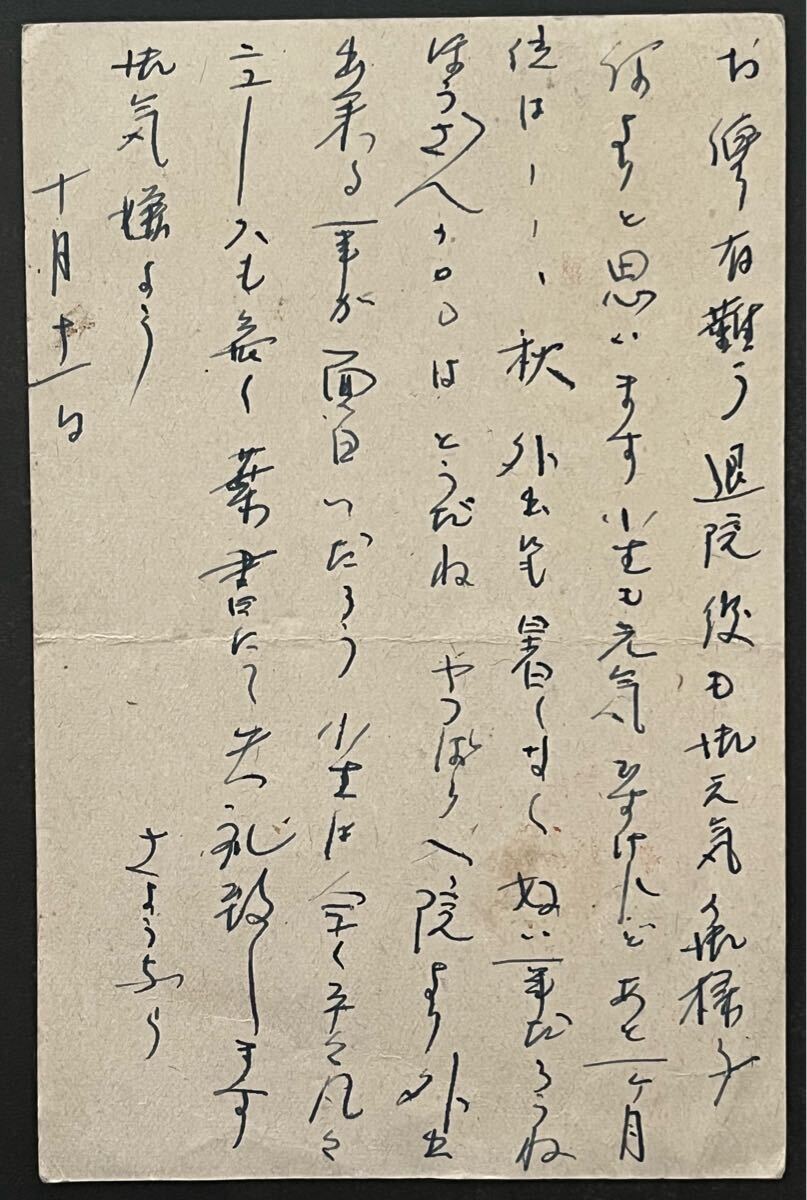 お便り有難う退院後も御元気の御様子
何よりと思います小生も元気ですけれどあと一ヶ月
位は――、秋外出にも暑くなく好い事だろうね
はうさんの はとうだね やっぱり入院より外出
出来る事が面白いだろう小生は全く平々凡々
ニュースも無く葉書にて失礼致します
御気嫌よう さようなら
十月十一日